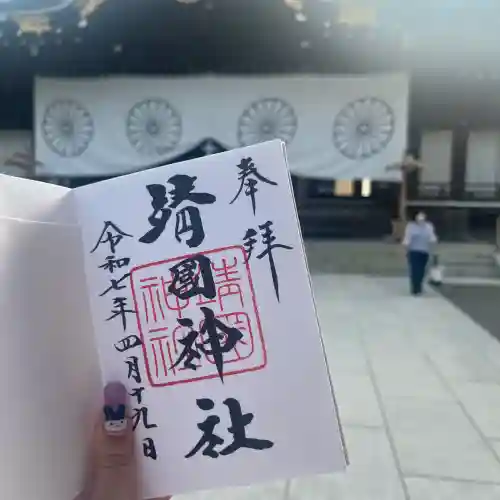 奉拝
靖國神社
靖国
神社
令和七年四月十九日